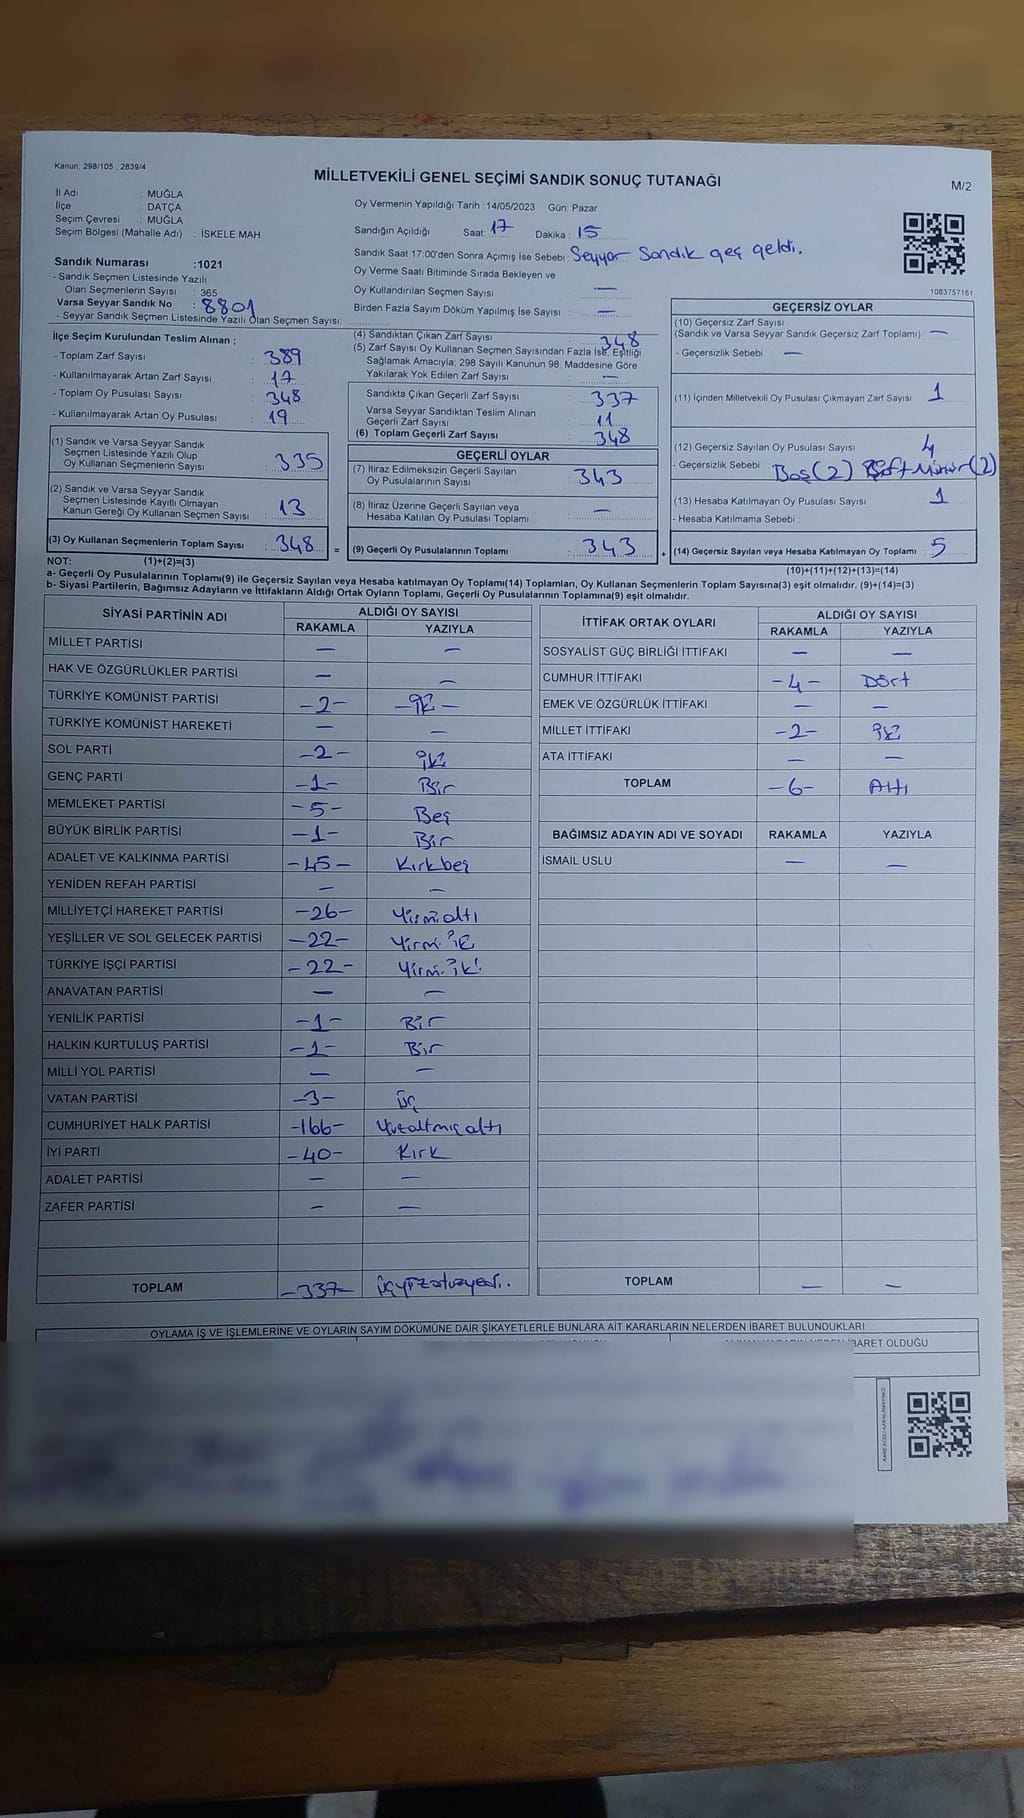 Kanun; 298/105 , 2839/4
MİLLETVEKİLİ GENEL SEÇİMİ SANDIK SONUÇ TUTANAĞI
M/2
İl Adı : MUĞLA
İlçe : DATÇA
Seçim Çevresi : MUĞLA
Seçim Bölgesi (Mahalle Adı) : İSKELE MAH.
Oy Vermenin Yapıldığı Tarih :14/05/2023 Gün: Pazar
Sandığın Açıldığı Saat: 17 Dakika : 15
Sandık Saat 17:00'den Sonra Açımış İse Sebebi: Seyyar Sandık geç geldi.
Oy Verme Saati Bitiminde Sırada Bekleyen ve
Oy Kullandırılan Seçmen Sayısı : —
Birden Fazla Sayım Döküm Yapılmış İse Sayısı : —
Sandık Numarası :1021
- Sandık Seçmen Listesinde Yazılı
Olan Seçmenlerin Sayısı : 365
Varsa Seyyar Sandık No : 8801
- Seyyar Sandık Seçmen Listesinde Yazılı Olan Seçmen Sayısı:
1083757161
İlçe Seçim Kurulundan Teslim Alınan ;
- Toplam Zarf Sayısı : 389
- Kullanılmayarak Artan Zarf Sayısı : 17
- Toplam Oy Pusulası Sayısı : 348
- Kullanılmayarak Artan Oy Pusulası : 19
(1) Sandık ve Varsa Seyyar Sandık
Seçmen Listesinde Yazılı Olup
Oy Kullanan Seçmenlerin Sayısı : 335
(2) Sandık ve Varsa Seyyar Sandık
Seçmen Listesinde Kayıtlı Olmayan
Kanun Gereği Oy Kullanan Seçmen Sayısı : 13
(3) Oy Kullanan Seçmenlerin Toplam Sayısı : 348 =
(4) Sandıktan Çıkan Zarf Sayısı : 348
(5) Zarf Sayısı Oy Kullanan Seçmen Sayısından Fazla İse, Eşitliği
Sağlamak Amacıyla; 298 Sayılı Kanunun 98. Maddesine Göre
Yakılarak Yok Edilen Zarf Sayısı : —
Sandıkta Çıkan Geçerli Zarf Sayısı : 337
Varsa Seyyar Sandıktan Teslim Alınan
Geçerli Zarf Sayısı : 11
(6) Toplam Geçerli Zarf Sayısı : 348
GEÇERLİ OYLAR
(7) İtiraz Edilmeksizin Geçerli Sayılan
Oy Pusulalarının Sayısı : 343
(8) İtiraz Üzerine Geçerli Sayılan veya
Hesaba Katılan Oy Pusulası Toplamı : —
(9) Geçerli Oy Pusulalarının Toplamı : 343 +
GEÇERSİZ OYLAR
(10) Geçersiz Zarf Sayısı
(Sandık ve Varsa Seyyar Sandık Geçersiz Zarf Toplamı) —
- Geçersizlik Sebebi : —
(11) İçinden Milletvekili Oy Pusulası Çıkmayan Zarf Sayısı : 1
(12) Geçersiz Sayılan Oy Pusulası Sayısı : 4
- Geçersizlik Sebebi : Boş(2) Çift Mühür(2)
(13) Hesaba Katılmayan Oy Pusulası Sayısı : 1
- Hesaba Katılmama Sebebi :
(14) Geçersiz Sayılan veya Hesaba Katılmayan Oy Toplamı : 5
NOT: (1)+(2)=(3) (10)+(11)+(12)+(13)=(14)
a- Geçerli Oy Pusulalarının Toplamı(9) ile Geçersiz Sayılan veya Hesaba katılmayan Oy Toplamı(14) Toplamları, Oy Kullanan Seçmenlerin Toplam Sayısına(3) eşit olmalıdır. (9)+(14)=(3)
b- Siyasi Partilerin, Bağımsız Adayların ve İttifakların Aldığı Ortak Oyların Toplamı, Geçerli Oy Pusulalarının Toplamına(9) eşit olmalıdır.
SİYASİ PARTİNİN ADI ALDIĞI OY SAYISI
RAKAMLA YAZIYLA
MİLLET PARTİSİ — —
HAK VE ÖZGÜRLÜKLER PARTİSİ — —
TÜRKİYE KOMÜNİST PARTİSİ -2- -iki-
TÜRKİYE KOMÜNİST HAREKETİ — —
SOL PARTİ -2- iki
GENÇ PARTİ -1- Bir
MEMLEKET PARTİSİ -5- Beş
BÜYÜK BİRLİK PARTİSİ -1- Bir
ADALET VE KALKINMA PARTİSİ -45- Kırkbeş
YENİDEN REFAH PARTİSİ — —
MİLLİYETÇİ HAREKET PARTİSİ -26- Yirmialtı
YEŞİLLER VE SOL GELECEK PARTİSİ -22- Yirmi iki
TÜRKİYE İŞÇİ PARTİSİ -22- Yirmi iki
ANAVATAN PARTİSİ — —
YENİLİK PARTİSİ -1- Bir
HALKIN KURTULUŞ PARTİSİ -1- Bir
MİLLİ YOL PARTİSİ — —
VATAN PARTİSİ -3- üç
CUMHURİYET HALK PARTİSİ -166- Yüzaltmışaltı
İYİ PARTİ -40- Kırk
ADALET PARTİSİ — —
ZAFER PARTİSİ — —
TOPLAM -337- üçyüzotuzyedi..
İTTİFAK ORTAK OYLARI ALDIĞI OY SAYISI
RAKAMLA YAZIYLA
SOSYALİST GÜÇ BİRLİĞİ İTTİFAKI — —
CUMHUR İTTİFAKI -4- Dört
EMEK VE ÖZGÜRLÜK İTTİFAKI — —
MİLLET İTTİFAKI -2- iki
ATA İTTİFAKI — —
TOPLAM -6- Altı
BAĞIMSIZ ADAYIN ADI VE SOYADI RAKAMLA YAZIYLA
İSMAİL USLU — —
TOPLAM — —
OYLAMA İŞ VE İŞLEMLERİNE VE OYLARIN SAYIM DÖKÜMÜNE DAİR ŞİKAYETLERLE BUNLARA AİT KARARLARIN NELERDEN İBARET BULUNDUKLARI
İBARET OLDUĞU